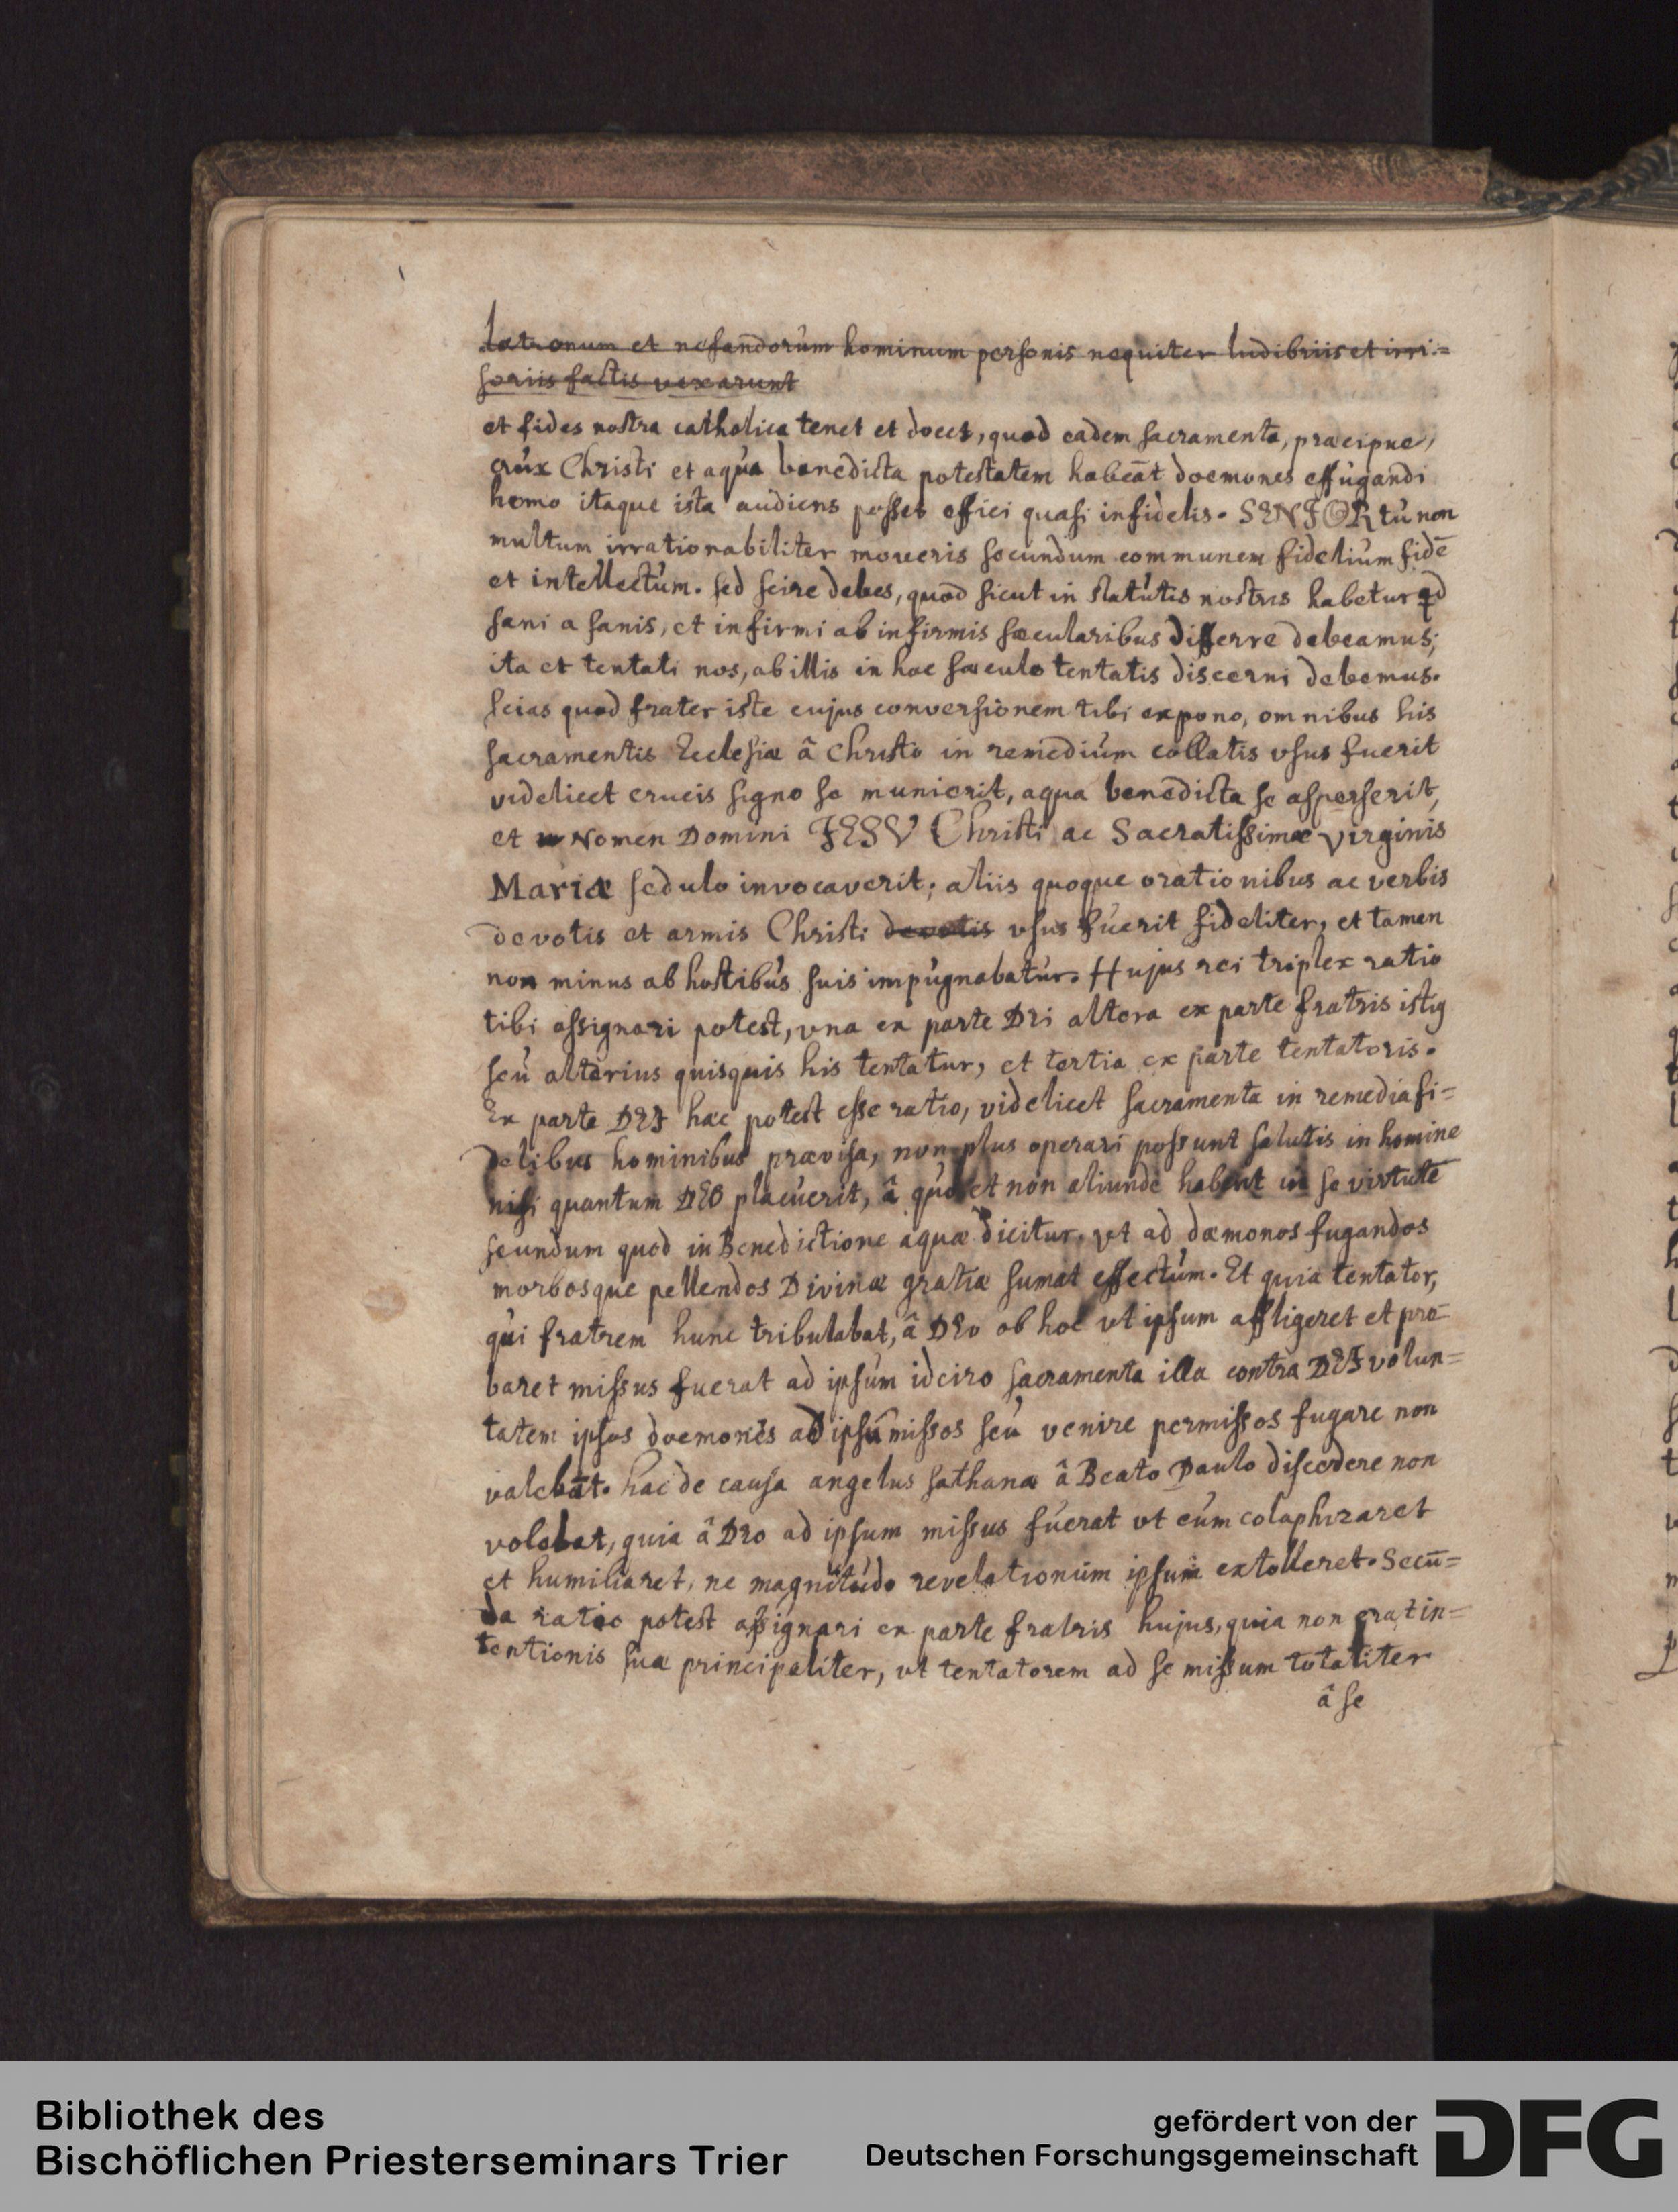 latronum et nefandorum hominum personis nequiter ludibriis et irri=
soriis factis vexarunt
et fides nostra catholica tenet et docet, quod eadem sacramenta, praecipue,
crúx Christi et aqúa benedicta potestatem habeāt doemones effúgandi
homo itaque ista audiens posset effici quasi infidelis. SENIOR tú non
multum irrationabiliter moveris secundum communem fideliúm fidē
et intellectúm. sed scire debes, quod sicut in statútis nostris habetur qd
sani a sanis, et infirmi ab infirmis saecularibus differre debeamus;
ita et tentati nos, ab illis in hoc saeculo tentatis discerni debemus.
Scias quod frater iste cujus conversionem tibi expono, omnibus his
sacramentis Ecclesiæ â Christo in remediúm collatis vsus fuerit
videlicet crucis signo se munierit, aqua benedicta se asperserit,
et Nomen Domini JESV Christi ac Sacratissimæ Virginis
Mariæ sedulo invocaverit; aliis quoque orationibus ac verbis
devotis et armis Christi devotis vsus fúerit fideliter, et tamen
non minus ab hostibús suis impúgnabatúr. Hujus rei triplex ratio
tibi assignari potest, vna ex parte DEi altera ex parte fratris istiq
seú alterius quisquis his tentatur, et tertia ex parte tentatoris.
Ex parte DEJ hæc potest esse ratio, videlicet sacramenta in remedia fi=
delibus hominibus prævisa, non plus operari possunt salutis in homine
nisi quantum DEO placúerit, â quo et non aliunde habent in se virtutē
seundum quod in Benedictione aquæ dicitur. vt ad dæmones fugandos
morbosque pellendos Divinæ gratiæ sumat effectúm. Et quia tentator,
qúi fratrem hunc tribulabat, â DEo ob hoc vt ipsum affligeret et pro-
baret missus fuerat ad ipsúm idciro sacramenta illa contra DEJ volun=
tatem ipsos doemones ad ipsū missos seú venire permissos fugare non
valebāt. hac de causa angelus sathanæ â Beato Paulo discedere non
volebat, quia â DEo ad ipsum missus fúerat vt eúm colaphizaret
et humiliaret, ne magnitúdo revelationúm ipsum extolleret. Secū=
da ratio potest assignari ex parte fratris hujus, quia non erat in=
tentionis suæ principaliter, vt tentatorem ad se missum totaliter
â se
Bibliothek des
Bischöflichen Priesterseminars Trier
gefördert von der
Deutschen Forschungsgemeinschaft
DFG